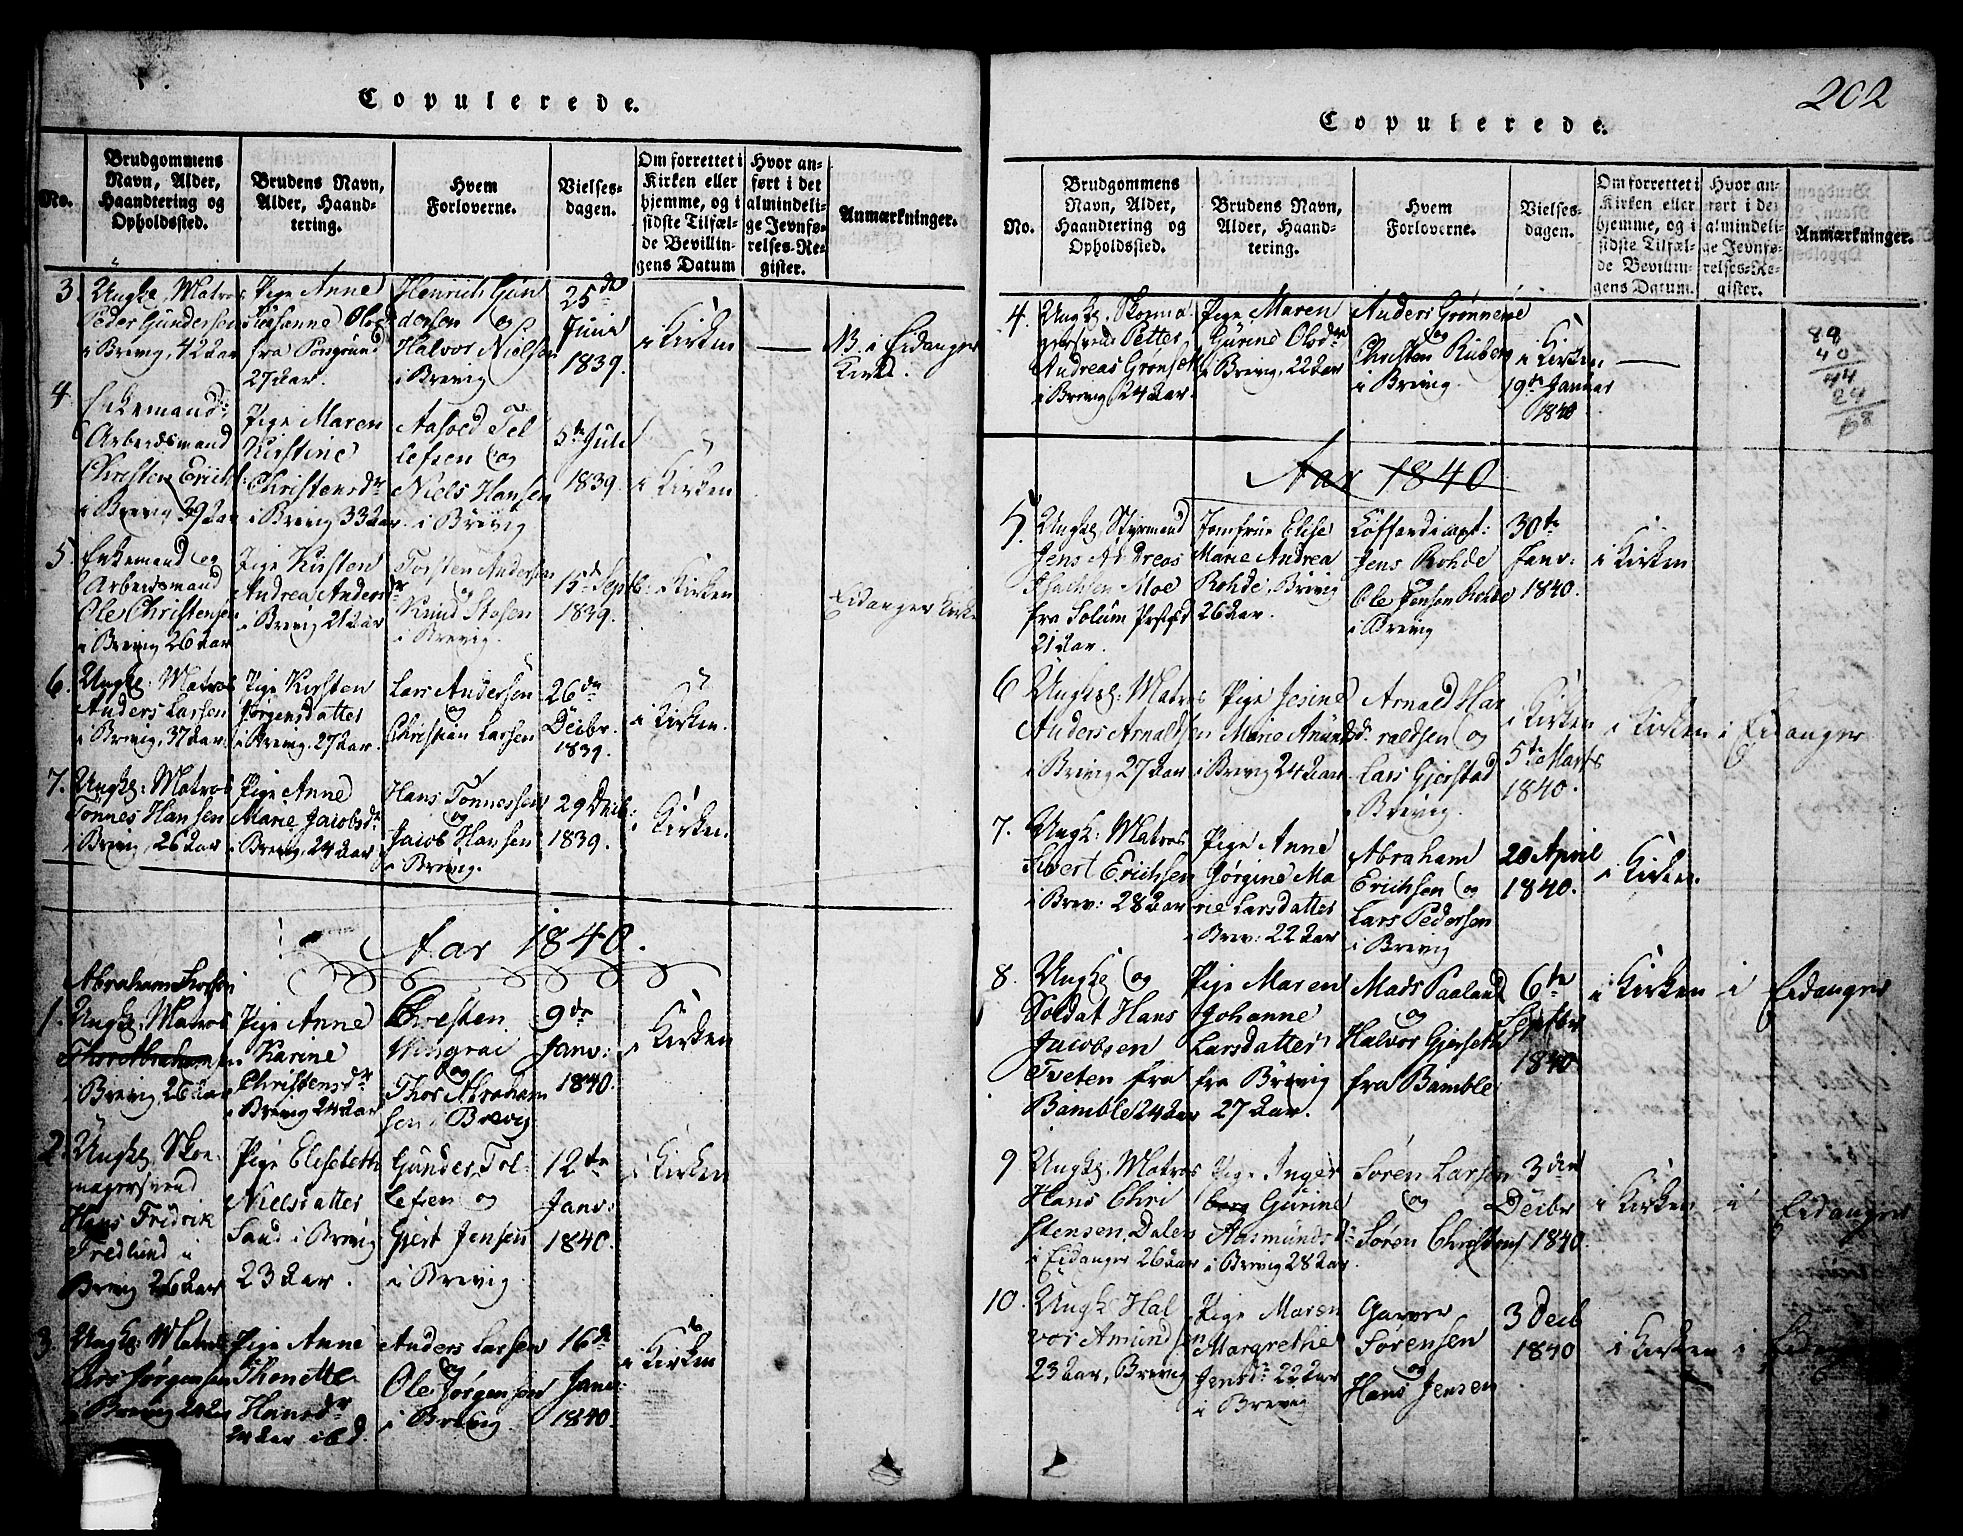 Copulerede.
No.
Brudgommens
Navn, Alder,
Haandtering og
Opholdssted.
Brudens Navn,
Alder, Haand-
tering.
Hvem
Forloverne.
Vielses-
dagen.
Om forrettet i
Kirken eller
hjemme, og i
sidste Tilfæl-
de Bevillin-
gens Datum
Hvor an-
ført i det
almindeli-
ge Jevnfø-
relses-Re-
gister.
Anmærkninger.
3.
Ungk. Matros
Peder Gundersen
i Brevig, 42 Aar
Pige Anne
Susanne Ols
fra Porsgrund
27 Aar.
Henrich Gun
dersen og
Halvor Nielsen
i Brevig
25de
Junii
1839.
i Kirken
NB. i Eidanger
Kirke.
4
Enkemand
Arbeidsmand
Christen Erichs
i Brevig 39 Aar
Pige Maren
Kirstine
Christensdr
i Brevig 33 Aar
Aasold Tel
lefsen og
Niels Hansen
i Brevig
5te Juli
1839.
i Kirken
5.
Enkemand og
Arbeidsmand
Ole Christensen
i Brevig 26 Aar
Pige Kirsten
Andrea Anders
dr
i Brevig 21 Aar
Torsten Andersen
og
Knud Olsen
i Brevig.
15de Septb:
1839.
i Kirken
Eidanger Kirke
6.
Ungk: Matros
Anders Larsen
i Brevig, 37 Aar.
Pige Kirsten
Jørgensdatter
i Brevig, 27 Aar.
Lars Andersen
og
Christian Larsen
26de
Decbr.
1839.
i Kirken.
7.
Ungk: Matros
Tønnes Hansen
i Brevig, 26 Aar
Pige Anne
Marie Jacobsdr
i Brevig, 24 Aar
Hans Tønnessen
og
Jacob Hansen
i Brevig.
29 Decb:
1839.
i Kirken.
Aar 1840.
Abraham Thorsen
1.
Ungk. Matros
Thor Abrahamsen
i Brevig, 26 Aar
Pige Anne
Karine
Christensdr
i Brevig 24 Aar
Christen
Wingrai
og
Thor Abraham
sen i Brevig
9de
Janv:
1840.
i Kirken
2.
Ungk. Skoe-
magersvend
Hans Fridrik
Fredlund i
Brevig 26 Aar
Pige Elisebeth
Nielsdatter
Sand i Brevig
23 Aar.
Gunder Tol-
lefsen og
Giert Jensen
i Brevig.
12te
Janv:
1840.
i Kirken
3.
Ungk. Matros
Lars Jørgensen
i Brevig
Pige Anne
Thonette
Hansdr
Aar ibd.
Anders Larsen
og
Ole Jørgensen
i Brevig
16de
Janv:
1840
i Kirken
202
Copulerede.
No.
Brudgommens
Navn, Alder,
Haandtering og
Opholdssted.
Brudens Navn,
Alder, Haand-
tering.
Hvem
Forloverne.
Vielses-
dagen.
Om forrettet i
Kirken eller
hjemme, og i
sidste Tilfæl-
de Bevillin-
gens Datum.
Hvor an-
ført i det
almindeli-
ge Jevnfø-
relses-Re-
gister.
Anmærkninger.
4.
Ungk. Skoema
gersvend Petter
Andreas Grønseth
i Brevig 24 Aar.
Pige Maren
Gurine Olsdr
i Brevig, 22 Aar
Anders Grønnene
og
Christen Ruberg
i Brevig.
i Kirken
19de Januar
1840
84
40
44
24
68
Aar 1840
5.
Ungk. Styrmand
Jens Andreas
Moe
fra Solum Prstgd
21 Aar.
Jomfrue Elise
Marie Andrea
Rohde, Brevig
26 Aar.
Coffardicapt:
Jens Rohde
og
Ole Jensen Rohde
i Brevig
30te
Janv:
1840.
i Kirken
6
Ungk. Matros
Anders Arnaldsen
i Brevig 27 Aar
Pige Jesine
Marie Amunds
dr.
i Brevig 24 Aar
Arnald Har
raldsen og
Lars Gjerstad
i Brevig.
i Kirken
5te Marts
1840.
i Kirken i Eidanger
7.
Ungk: Matros
Sivert Erichsen
i Brev: 28 Aar
Pige Anne
Jørgine Ma
rie Larsdatter
i Brev: 22 Aar
Abraham
Erichsen og
Lars Pedersen
i Brevig
20 April
1840.
i Kirken
8.
Ungk. og
Soldat Hans
Jacobsen
Tveten fra
Bamble 24 Aar
Pige Maren
Johanne
Larsdatter
fra Brevig
27 Aar.
Mads Paaland
og
Halvor Gjerseth
fra Bamble
6te
Septbr
1840
i Kirken i Eidanger
9
Ungk: Matros
Hans Chri
stensen Dalen
i Eidanger 26 Aar
Pige Inger
Gurine
Aasmundsdr
i Brevig 28 Aar.
Søren Larsen
og
Søren Christens
3den
Decbr
1840.
i Kirken i Eidanger
10.
Ungk. Hal
vor Amundsen
23 Aar, Brevig
Pige Maren
Margrethe
Jensdr. 22 Aar
i Brevig
Garver
Sørensen
og
Hans Jensen
3 Decb
1840
i Kirken i